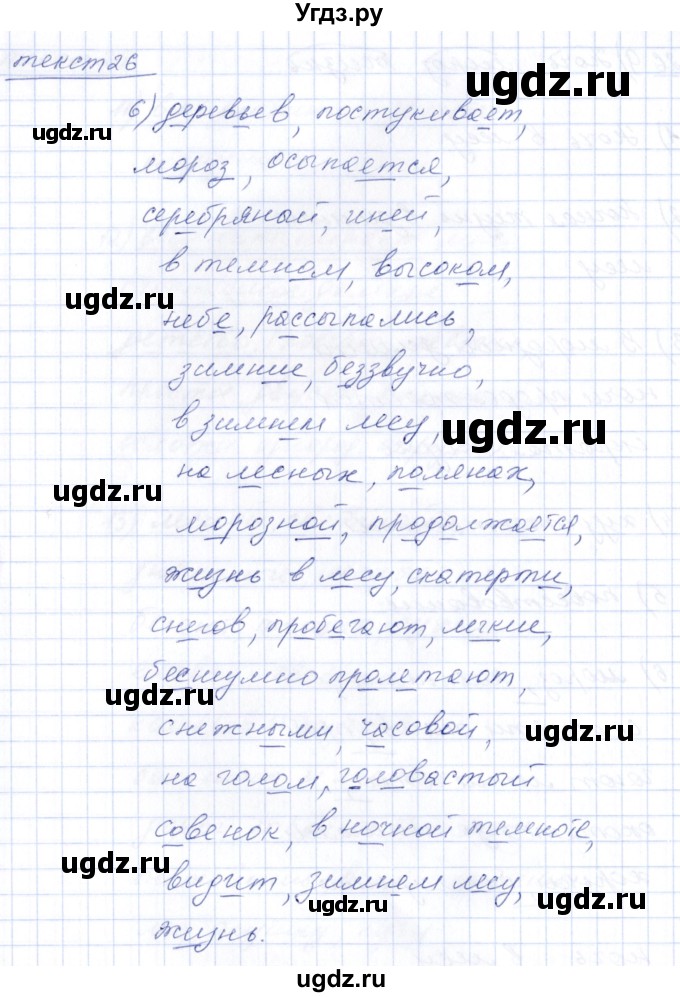 Угдз.ру
текст 26
6) деревьев, постукивает,
мороз, осыпается,
серебряной, иней,
в темном, высоком,
небе, рассыпались,
зимние, беззвучно,
в зимнем лесу,
на лесных, полянах,
морозной, продолжается,
жизнь в лесу, скатерти,
снегов, пробегают, легкие,
бесшумно пролетают,
снежными, часовой,
на голом, головастый
совенок, в ночной темноте,
видит, зимнем лесу,
жизнь.
ugdz.ru
ugdz.ru
ugdz.ru
ugdz.ru
ugdz.ru
ugdz.ru
ugdz.ru
ugdz.ru
ugdz.ru
ugdz.ru
ugdz.ru
ugdz.ru
ugdz.ru